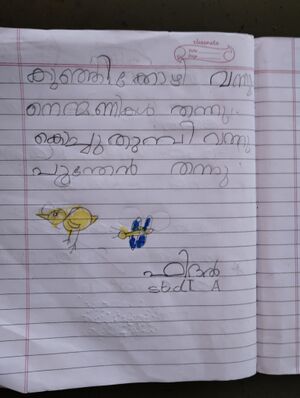 classmate
Date
Page
കുഞ്ഞിക്കോഴി വന്നു
നെന്മണികൾ തന്നു
കൊച്ചുതുമ്പി വന്നു
പൂന്തേൻ തന്നു
ഫിദൽ
std I A